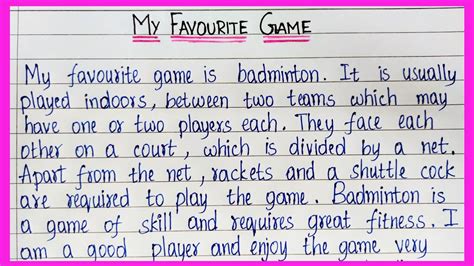 My Favourite Game
My favourite game is badminton. It is usually
played indoors, between two teams which may
have one or two players each. They face each
other on a court, which is divided by a net.
Apart from the net, rackets and a shuttle cock
are required to play the game. Badminton is
a game of skill and requires great fitness. I
am a good player and enjoy the game very